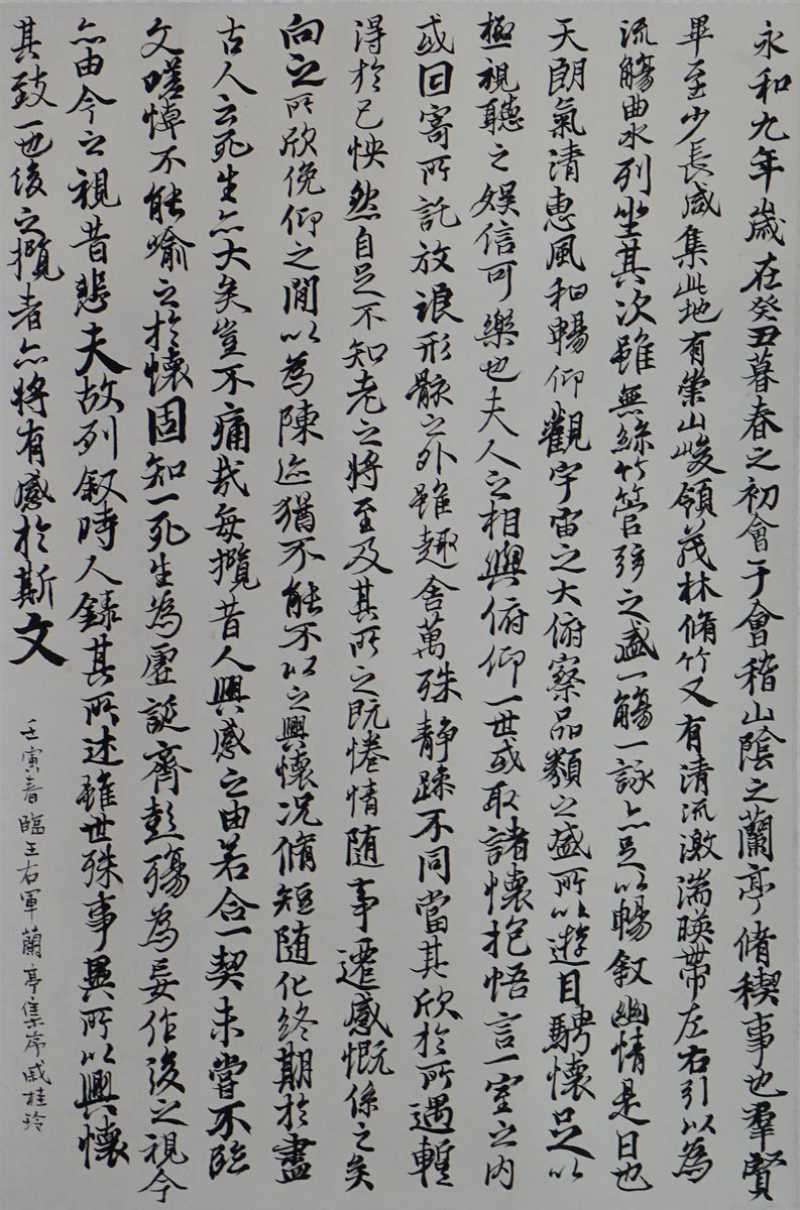 永和九年歲在癸丑暮春之初會于會稽山陰之蘭亭脩稧事也羣賢
畢至少長咸集此地有崇山峻領茂林脩竹又有清流激湍暎帶左右引以為
流觴曲水列坐其次雖無絲竹管弦之盛一觴一詠亦足以暢叙幽情是日也
天朗氣清惠風和暢仰觀宇宙之大俯察品類之盛所以遊目騁懷足以
極視聽之娱信可樂也夫人之相與俯仰一世或取諸懷抱悟言一室之内
或因寄所託放浪形骸之外雖趣舍萬殊静躁不同當其欣於所遇暫
得於己怏然自足不知老之將至及其所之既惓情随事遷感慨係之矣
向之所欣俛仰之閒以為陳迹猶不能不以之興懷况脩短随化終期於盡
古人云死生亦大矣豈不痛哉每攬昔人興感之由若合一契未嘗不臨
文嗟悼不能喻之於懷固知一死生為虚誕齊彭殤為妄作後之視今
亦由今之視昔悲夫故列叙時人錄其所述雖世殊事異所以興懷
其致一也後之攬者亦將有感於斯文
壬寅春臨王右軍蘭亭集序戚桂玲